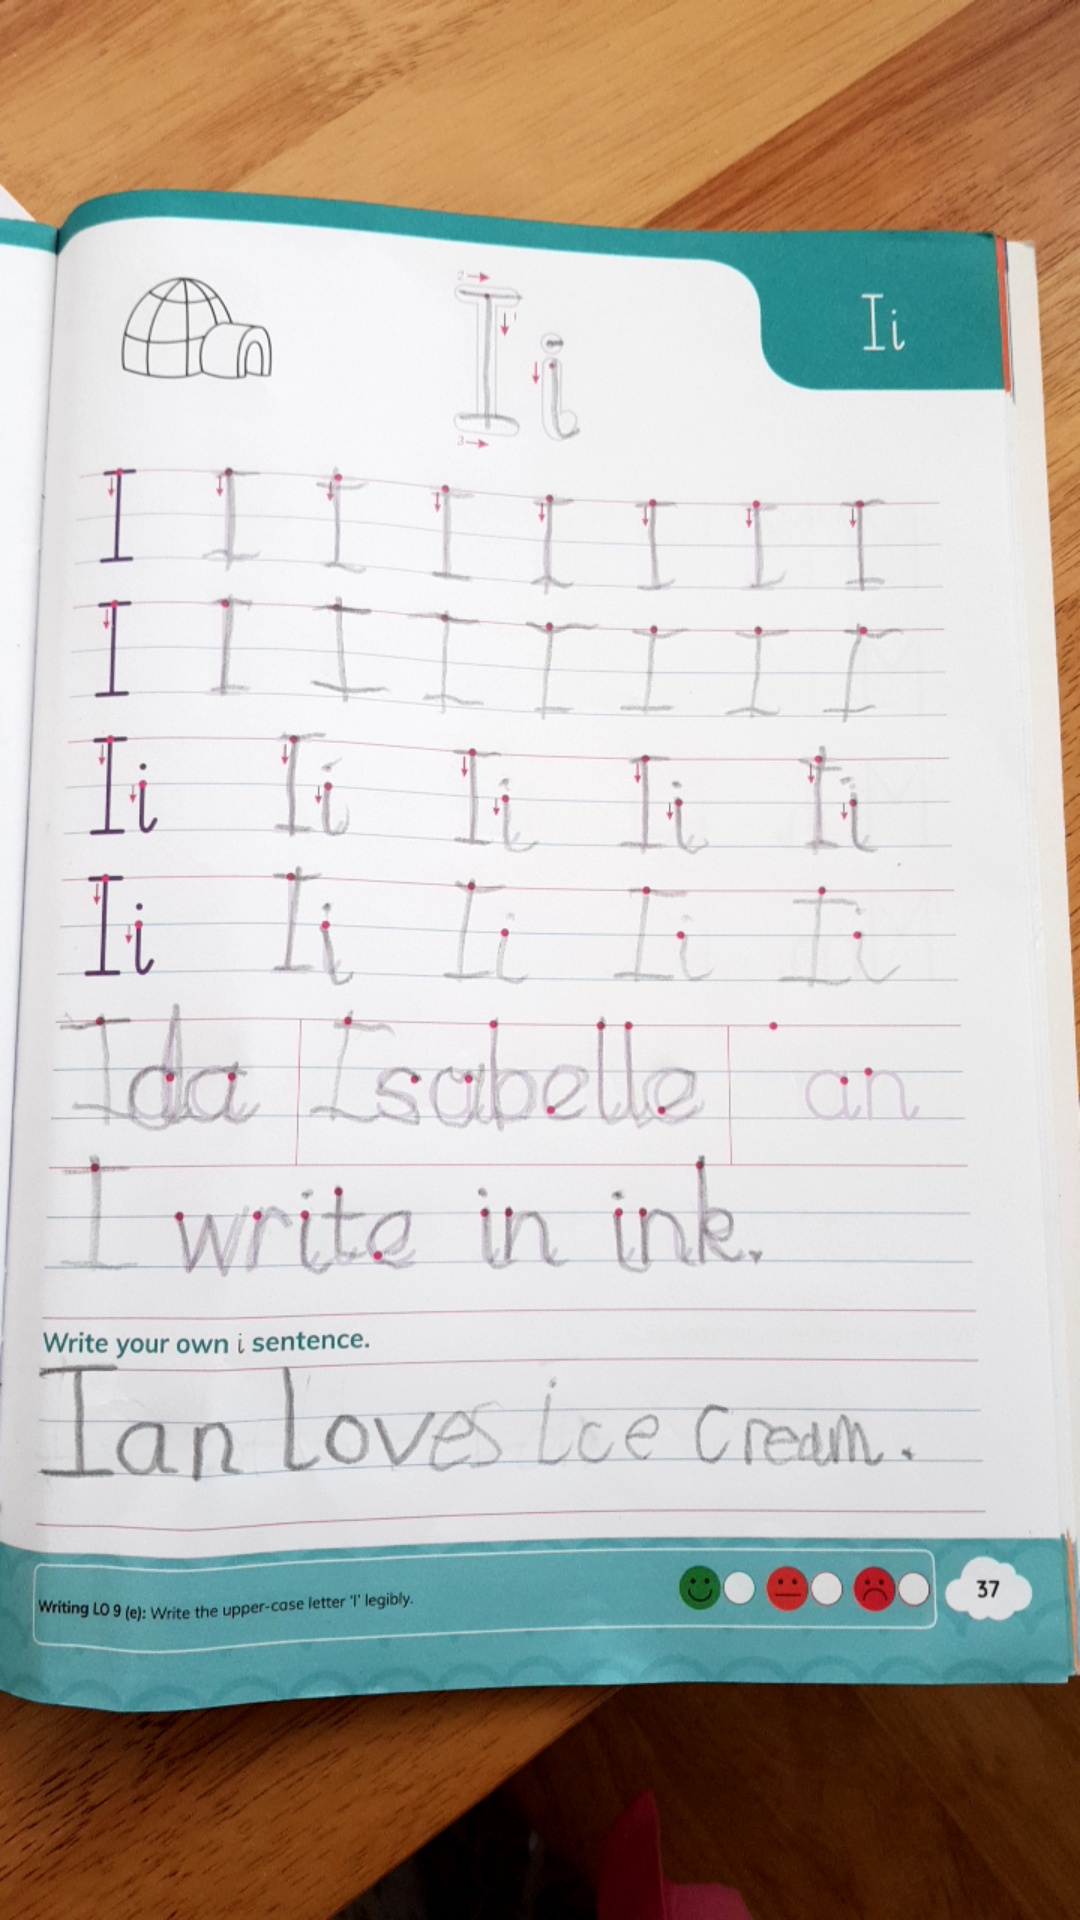 Ii
2
1
I i
3
I I I I I I I I
I I I I I I I I
Ii Ii Ii Ii Ii
Ii Ii Ii Ii Ii
Ida Isabelle an
I write in ink.
Write your own i sentence.
Ian Loves ice Cream.
Writing LO 9 (e): Write the upper-case letter 'I' legibly.
37